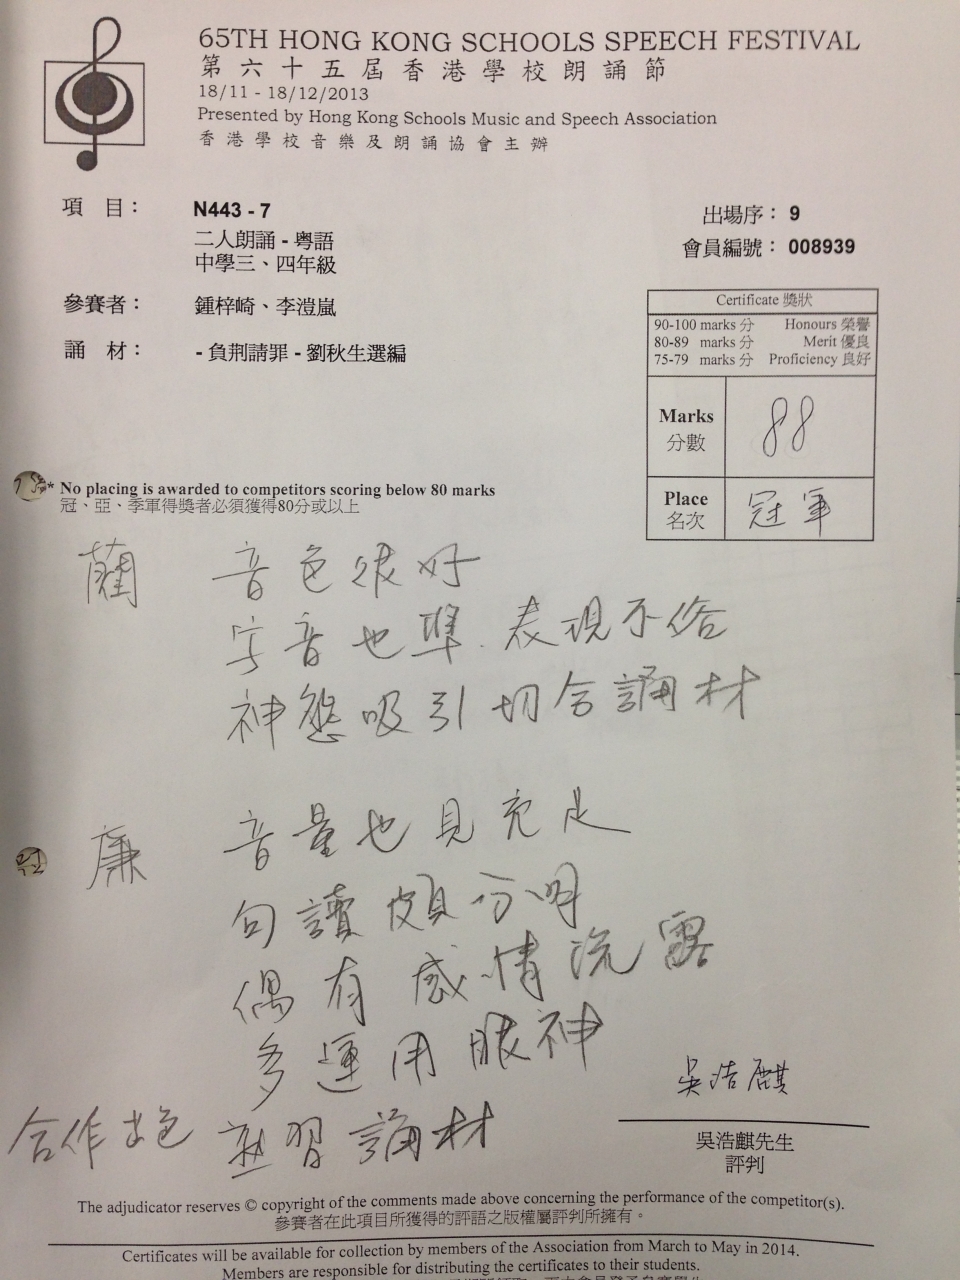 65TH HONG KONG SCHOOLS SPEECH FESTIVAL
第六十五屆香港學校朗誦節
18/11 - 18/12/2013
Presented by Hong Kong Schools Music and Speech Association
香港學校音樂及朗誦協會主辦
項 目： N443 - 7
出場序： 9
二人朗誦 - 粵語
會員編號： 008939
中學三、四年級
參賽者： 鍾梓崎、李澄嵐
誦 材： - 負荆請罪 - 劉秋生選編
Certificate 獎狀
90-100 marks 分 Honours 榮譽
80-89 marks 分 Merit 優良
75-79 marks 分 Proficiency 良好
Marks
分數
88
Place
名次
冠軍
* No placing is awarded to competitors scoring below 80 marks
冠、亞、季軍得獎者必須獲得80分或以上
藺 音色很好
字音也準．表現不俗
神態吸引切合誦材
廉 音量也見充足
句讀頗分明
偶有感情流露
多運用眼神
合作出色 熟習誦材
吳浩麒
吳浩麒先生
評判
The adjudicator reserves © copyright of the comments made above concerning the performance of the competitor(s).
參賽者在此項目所獲得的評語之版權屬評判所擁有。
Certificates will be available for collection by members of the Association from March to May in 2014.
Members are responsible for distributing the certificates to their students.